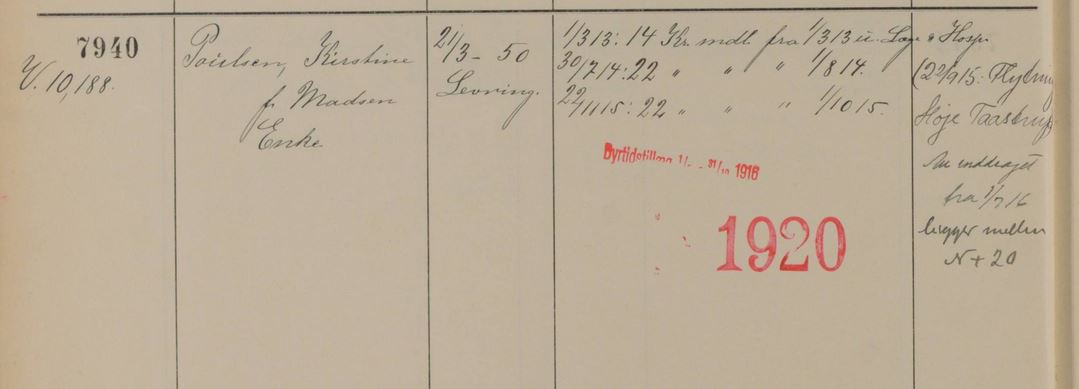 7940
V. 10,188.
Poulsen, Kirstine
f. Madsen
Enke
21/3 - 50
Levring.
1/3 13: 14 Kr. mdl. fra 1/3 13 u. Læge & Hosp.
30/7 14: 22 " " " 1/8 14.
22/11 15: 22 " " " 1/10 15.
(22/9 15: Flytning
Høje Taastrup
Au inddraget
fra 1/7 16
ligger mellem
N + 20
Dyrtidstillæg 31/10 1916
1920